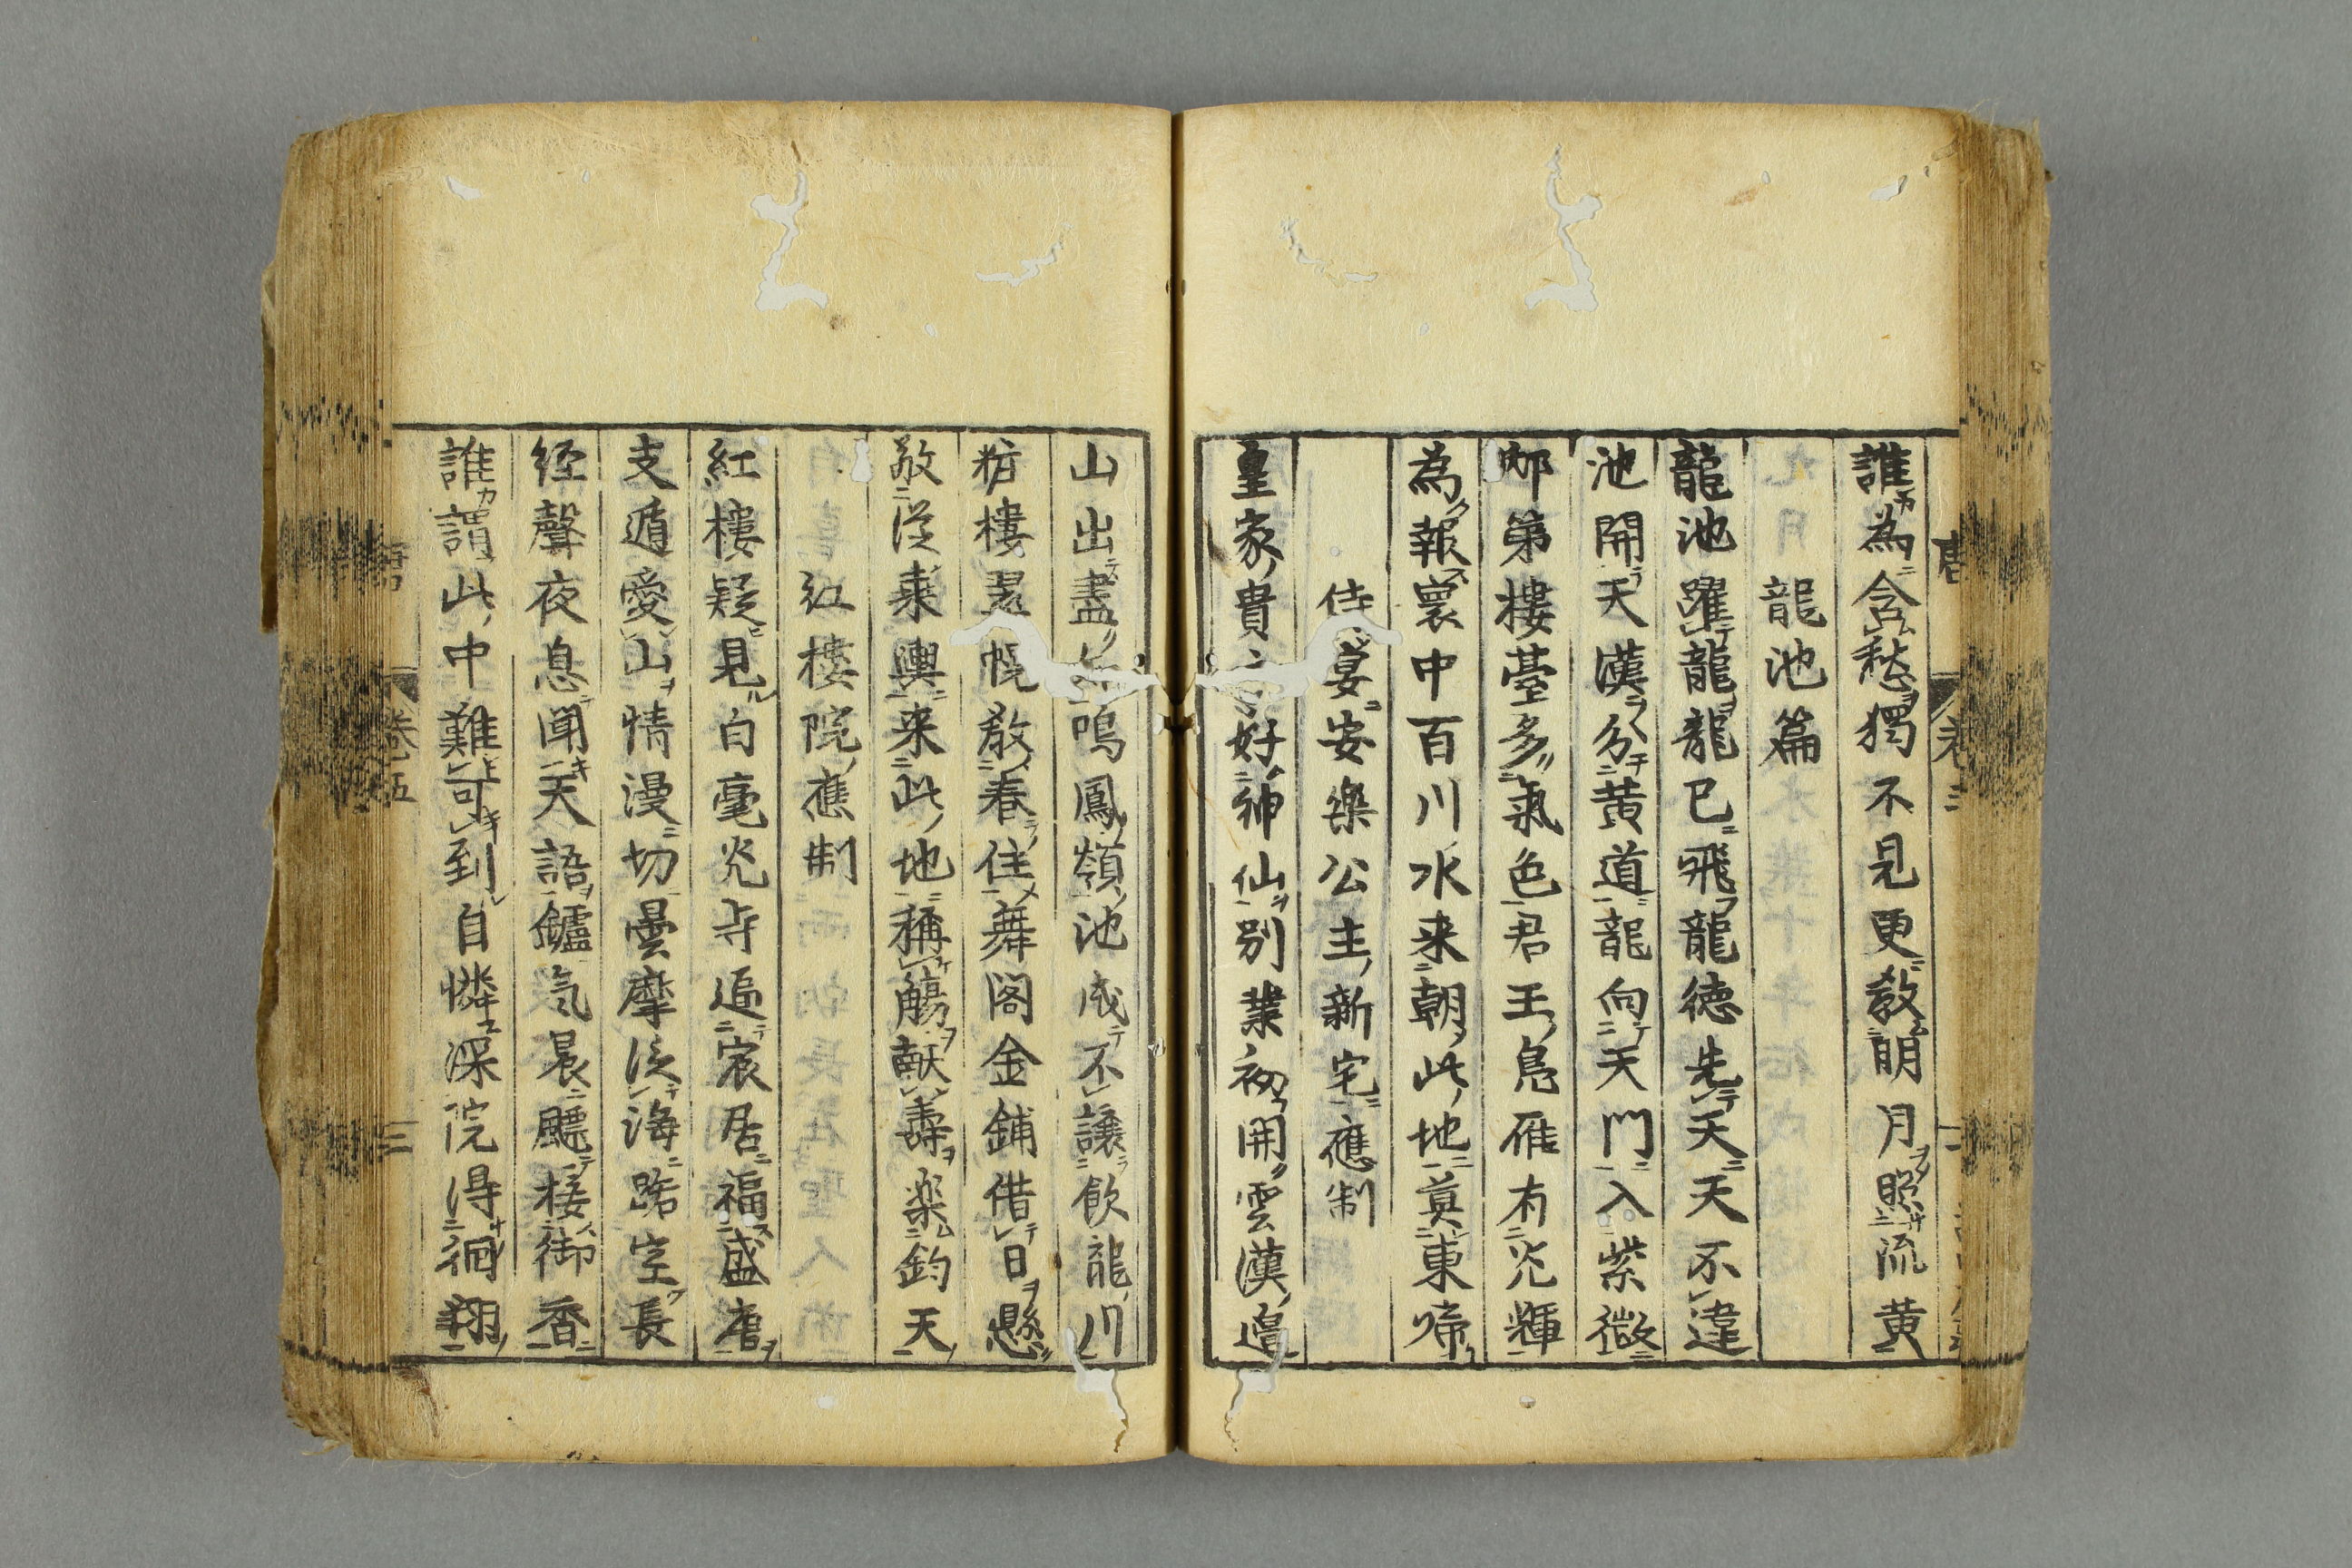 誰為含愁獨不見更教明月照流黄
龍池篇
龍池躍龍龍已飛龍徳先天天不違
池開天漢分黄道龍向天門入紫微
邸第樓䑓多氣色君王鳬雁有光輝
為報寰中百川水来朝此地莫東帰
侍宴安樂公主新宅應制
皇家貴主好神仙別業初開雲漢邉
山出盡如鳴鳳嶺池成不譲飲龍川
粧樓翠幌教春住舞閣金鋪借日懸
敬從乗輿来此地稱觴献壽楽鈞天
紅樓院應制
紅樓疑見白毫光寺逼宸居福盛唐
支遁愛山情漫切曇摩泛海路空長
経聲夜息聞天語鑪気晨飄接御香
誰謂此中難可到自憐深院得徊翔
卷五
三